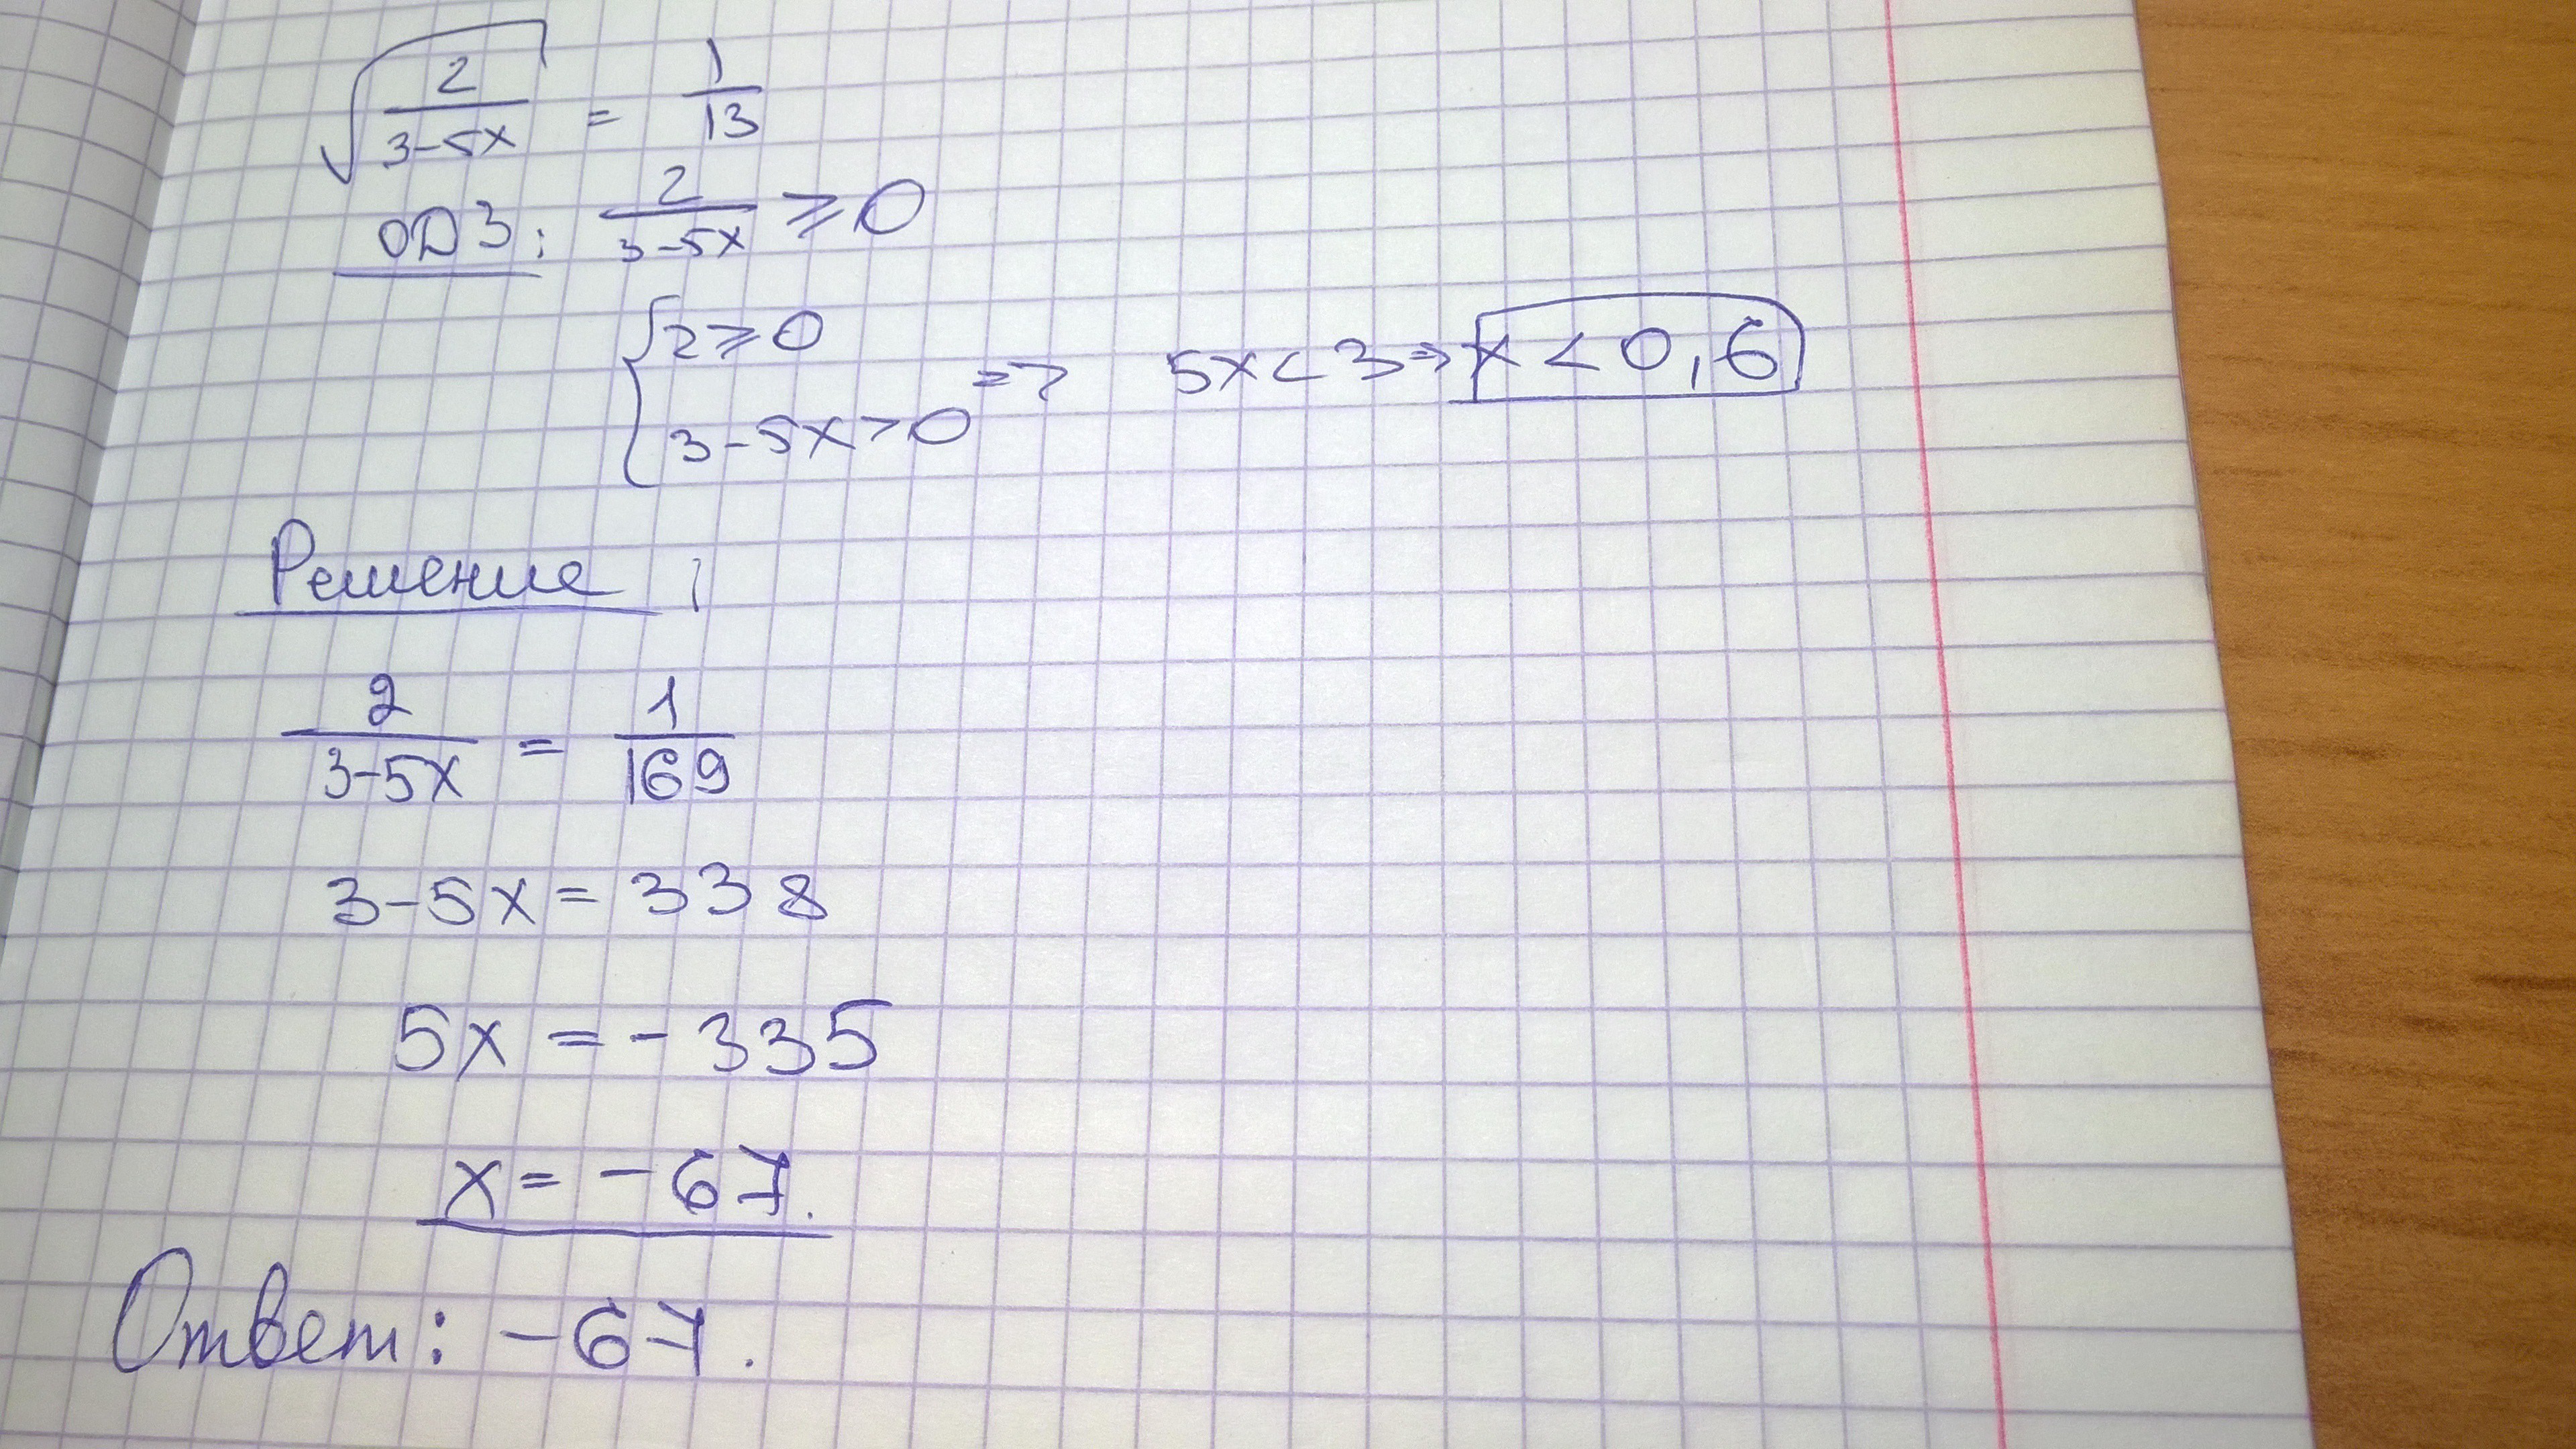 √(2/(3-5x)) = 1/13
ОДЗ: 2/(3-5x) ≥ 0
{ 2 ≥ 0
3-5x > 0 => 5x < 3 => x < 0,6
Решение:
2/(3-5x) = 1/169
3-5x = 338
5x = -335
x = -67.
Ответ: -67.